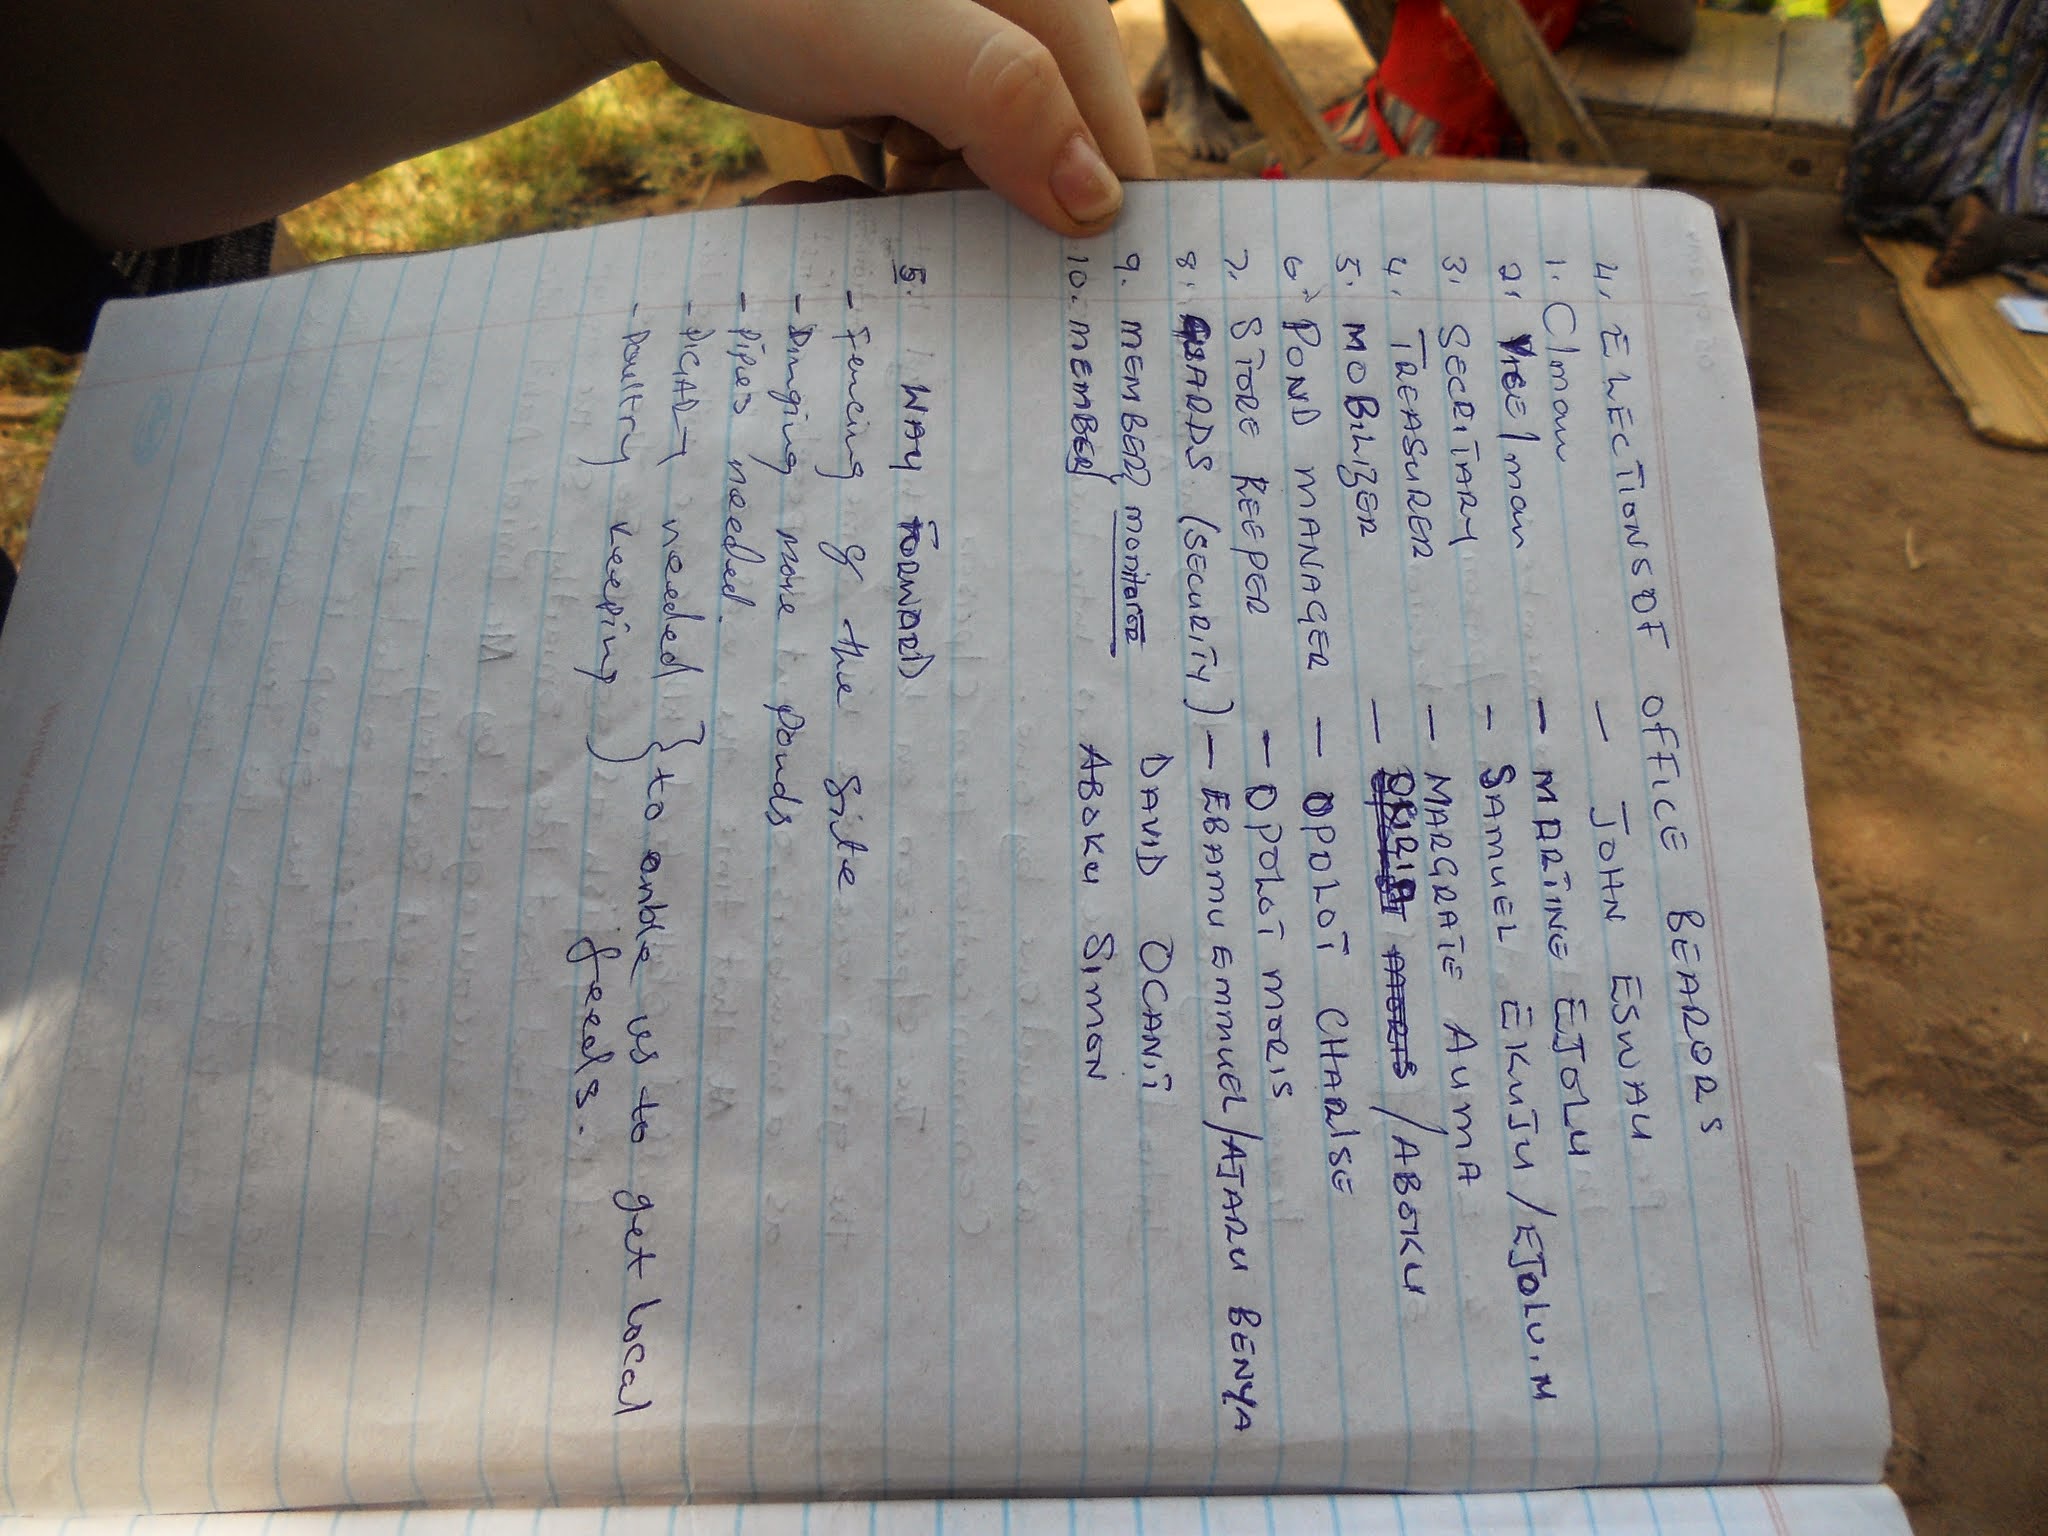 4. ELECTIONS OF OFFICE BEARORS
1. C/man - JOHN ESWAU
2. VICE/man - MARTINE EJOLU
3. SECRITARY - SAMUEL EKUJU/EJOLU.M
4. TREASURER - MARGRATE AUMA
5. MOBILIZER - /ABOKU
6. POND MANAGER - OPOLOT CHARLSE
7. STORE KEEPER - OPOLOT MORIS
8. GUARDS (SECURITY) - EBAMU EMMUEL/AJARU BENYA
9. MEMBER monitoror DAVID OCANIT
10. MEMBER ABOKU SIMON
5. WAY FORWARD
- Fencing of the Site
- Dinging more Ponds
- Pipes needed.
- PIGARY needed } to enble us to get local
- Poultry keeping } feeds.